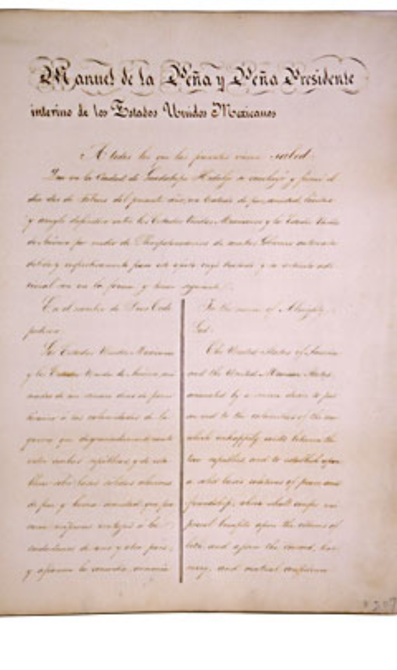 Manuel de la Peña y Peña Presidente
interino de los Estados Unidos Mexicanos
A todos los que las presentes vieren sabed:
Que en la Ciudad de Guadalupe Hidalgo se concluyó y firmó el
dia dos de Febrero del presente año, un tratado de paz, amistad, limites
y arreglo definitivo entre los Estados Unidos Mexicanos y los Estados Unidos
de America por medio de Plenipotenciarios de ambos Gobiernos
debida y respectivamente para este efecto cuyo tratado y su articulo adi-
cional son en la forma y tenor siguiente.
En el nombre de Dios Todo
poderoso
Los Estados Unidos Mexicanos
y los Estados Unidos de America, ani-
mados de un sincero deseo de poner
termino a las calamidades de la
guerra que desgraciadamente existe
entre ambas republicas y de esta-
blecer sobre bases solidas relaciones
de paz y buena amistad, que pro-
curen reciprocas ventajas a los
ciudadanos de uno y otro pais,
y afiancen la concordia, armonia
In the name of Almighty
God.
The United States of America
and the United Mexican States,
animated by a sincere desire to put
an end to the calamities of the war
which unhappily exists between the
two republics and to establish upon
a solid basis relations of peace and
friendship, which shall confer reci-
procal benefits upon the citizens of
both, and assure the concord, har-
mony, and mutual confidence